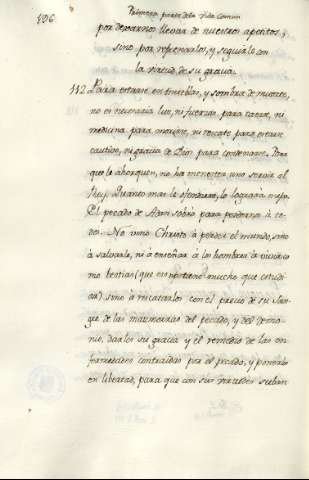 106.
Primera parte de la Vida Comun
por dexarnos llevar de nuestros apetitos,
sino por refrenarlos, y seguirlo con
la virtud de su gracia.
112. Para estarse en tinieblas, y sombra de muerte,
no es necesaria luz, ni fuerzas para caerse, ni
medicina para morirse, ni rescate para estarse
cautivo, ni gracia de Dios para condenarse. Para
que le ahorquen, no ha menester uno servir al
Rey. Quanto mas le ofendiere, lo lograra mejor.
El pecado de Adan sobró para perdernos à to-
dos. No vino Christo à perder el mundo, sino
à salvarle, ni à enseñar à los hombres à vivir co
mo bestias (que eso no tiene mucho que estudi
ar) sino à rescatarlos con el precio de su San-
gre de las mazmorras del pecado, y del Demo-
nio, darles su gracia y el remedio de las en-
fermedades contraidas por el pecado, y ponerlos
en libertad, para que con sus virtudes suban